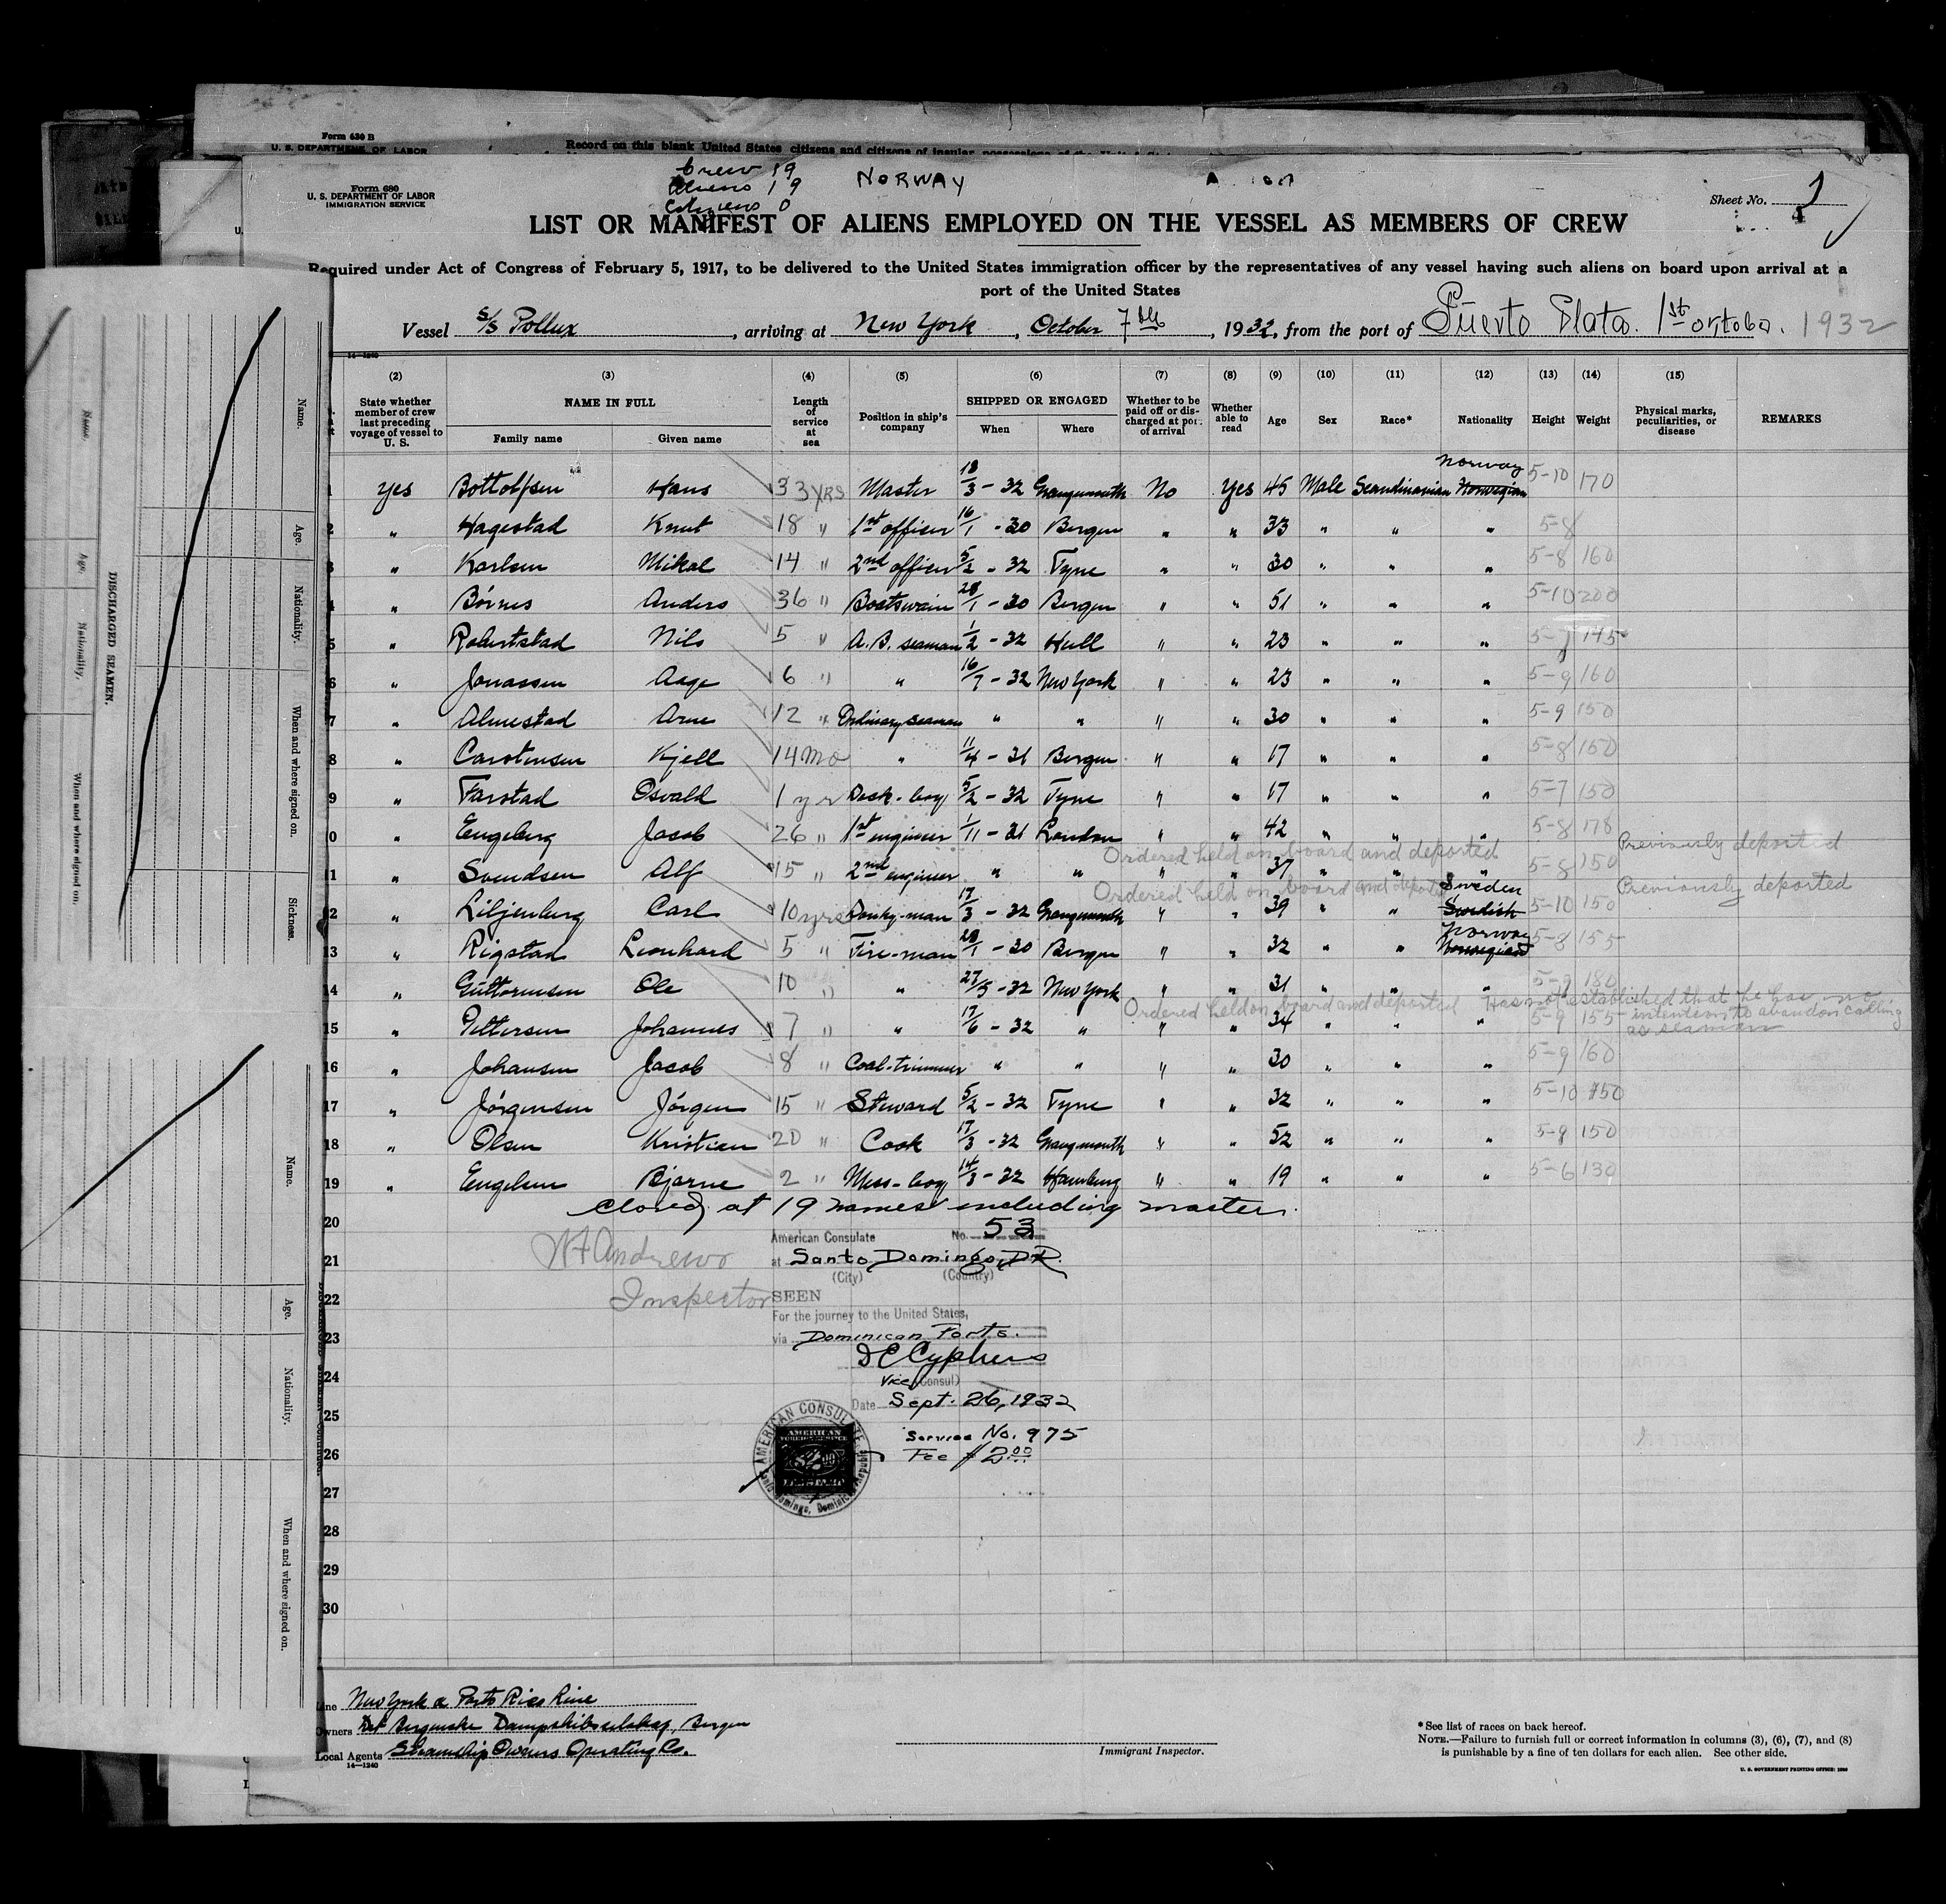 Form 630 B
U. S. DEPARTMENT OF LABOR
Record on this blank United States citizens and citizens of insular possessions of the United
Form 680
U. S. DEPARTMENT OF LABOR
IMMIGRATION SERVICE
Crew 19
Aliens 19
Citizens 0
NORWAY
Sheet No. 1
LIST OR MANIFEST OF ALIENS EMPLOYED ON THE VESSEL AS MEMBERS OF CREW
Required under Act of Congress of February 5, 1917, to be delivered to the United States immigration officer by the representatives of any vessel having such aliens on board upon arrival at a
port of the United States
Vessel S/S Pollux, arriving at New York, October 7th, 1932, from the port of Puerto Plata. 1st October. 1932
14—1240
(2) (3) (4) (5) (6) (7) (8) (9) (10) (11) (12) (13) (14) (15)
State whether member of crew last preceding voyage of vessel to U. S. NAME IN FULL Family name Given name Length of service at sea Position in ship's company SHIPPED OR ENGAGED When Where Whether to be paid off or discharged at port of arrival Whether able to read Age Sex Race* Nationality Height Weight Physical marks, peculiarities, or disease REMARKS
1 Yes Bottolfsen Hans 33 YRS Master 18/3 - 32 Grangemouth No Yes 45 Male Scandinavian Norwegian Norway 5-10 170
2 " Hagestad Knut 18 " 1st officer 16/1 - 30 Bergen " " 33 " " " 5-8
3 " Karlsen Mikal 14 " 2nd officer 5/2 - 32 Tyne " " 30 " " " 5-8 160
4 " Börnes Anders 36 " Boatswain 28/1 - 30 Bergen " " 51 " " " 5-10 200
5 " Robertstad Nils 5 " A.B. seaman 1/2 - 32 Hull " " 23 " " " 5-7 145
6 " Jonassen Aage 6 " " 16/7 - 32 New York " " 23 " " " 5-9 160
7 " Almestad Arne 12 " Ordinary seaman " " " " 30 " " " 5-9 150
8 " Carstensen Kjell 14 mo " 11/4 - 31 Bergen " " 17 " " " 5-8 150
9 " Farstad Osvald 1 yr Deck-boy 5/2 - 32 Tyne " " 17 " " " 5-7 150
10 " Engeberg Jacob 26 " 1st engineer 1/11 - 31 London " " 42 " " " 5-8 178
Ordered held on board and deported Previously deported
11 " Svendsen Alf 15 " 2nd engineer " " " " 37 " " " 5-8 150
Ordered held on board and deported Previously deported
12 " Liljenberg Carl 10 yrs Donky-man 17/3 - 32 Grangemouth " " 39 " " Swedish Sweden 5-10 150
13 " Rigstad Leonhard 5 " Fire-man 28/1 - 30 Bergen " " 32 " " Norwegian Norway 5-8 155
14 " Guttormsen Ole 10 " " 27/5 - 32 New York " " 31 " " " 5-9 180
Ordered held on board and deported Has not established that he has no intention to abandon calling as seaman
15 " Pettersen Johannes 7 " " 17/6 - 32 " " " 34 " " " 5-9 155
16 " Johansen Jacob 8 " Coal-trimmer " " " " 30 " " " 5-9 160
17 " Jörgensen Jörgen 15 " Steward 5/2 - 32 Tyne " " 32 " " " 5-10 150
18 " Olsen Kristian 20 " Cook 17/3 - 32 Grangemouth " " 52 " " " 5-8 150
19 " Engelsen Bjarne 2 " Mess-boy 14/3 - 32 Hamburg " " 19 " " " 5-6 130
closed at 19 names including master.
20
21
22
23
24
25
26
27
28
29
30
W F Andrews
Inspector
American Consulate No. 53
at Santo Domingo, D.R.
(City) (Country)
SEEN
For the journey to the United States,
via Dominican Ports.
D E Cyphers
Vice (Consul)
Date Sept. 26, 1932
Service No. 975
Fee $2.00
AMERICAN CONSULATE
Santo Domingo, Dominican Republic
AMERICAN
FOREIGN SERVICE
Line New York & Porto Rico Line
Owners Det Bergenske Dampskibsselskap, Bergen
Local Agents Steamship Owners Operating Co.
14—1240
Immigrant Inspector.
*See list of races on back hereof.
NOTE.—Failure to furnish full or correct information in columns (3), (6), (7), and (8)
is punishable by a fine of ten dollars for each alien. See other side.
U. S. GOVERNMENT PRINTING OFFICE: 1930
DISCHARGED SEAMEN.
Name.
Age.
Nationality.
When and where signed on.
Sickness.
Name.
Age.
Nationality.
When and where signed on.
Name.
Age.
Nationality.
When and where signed on.